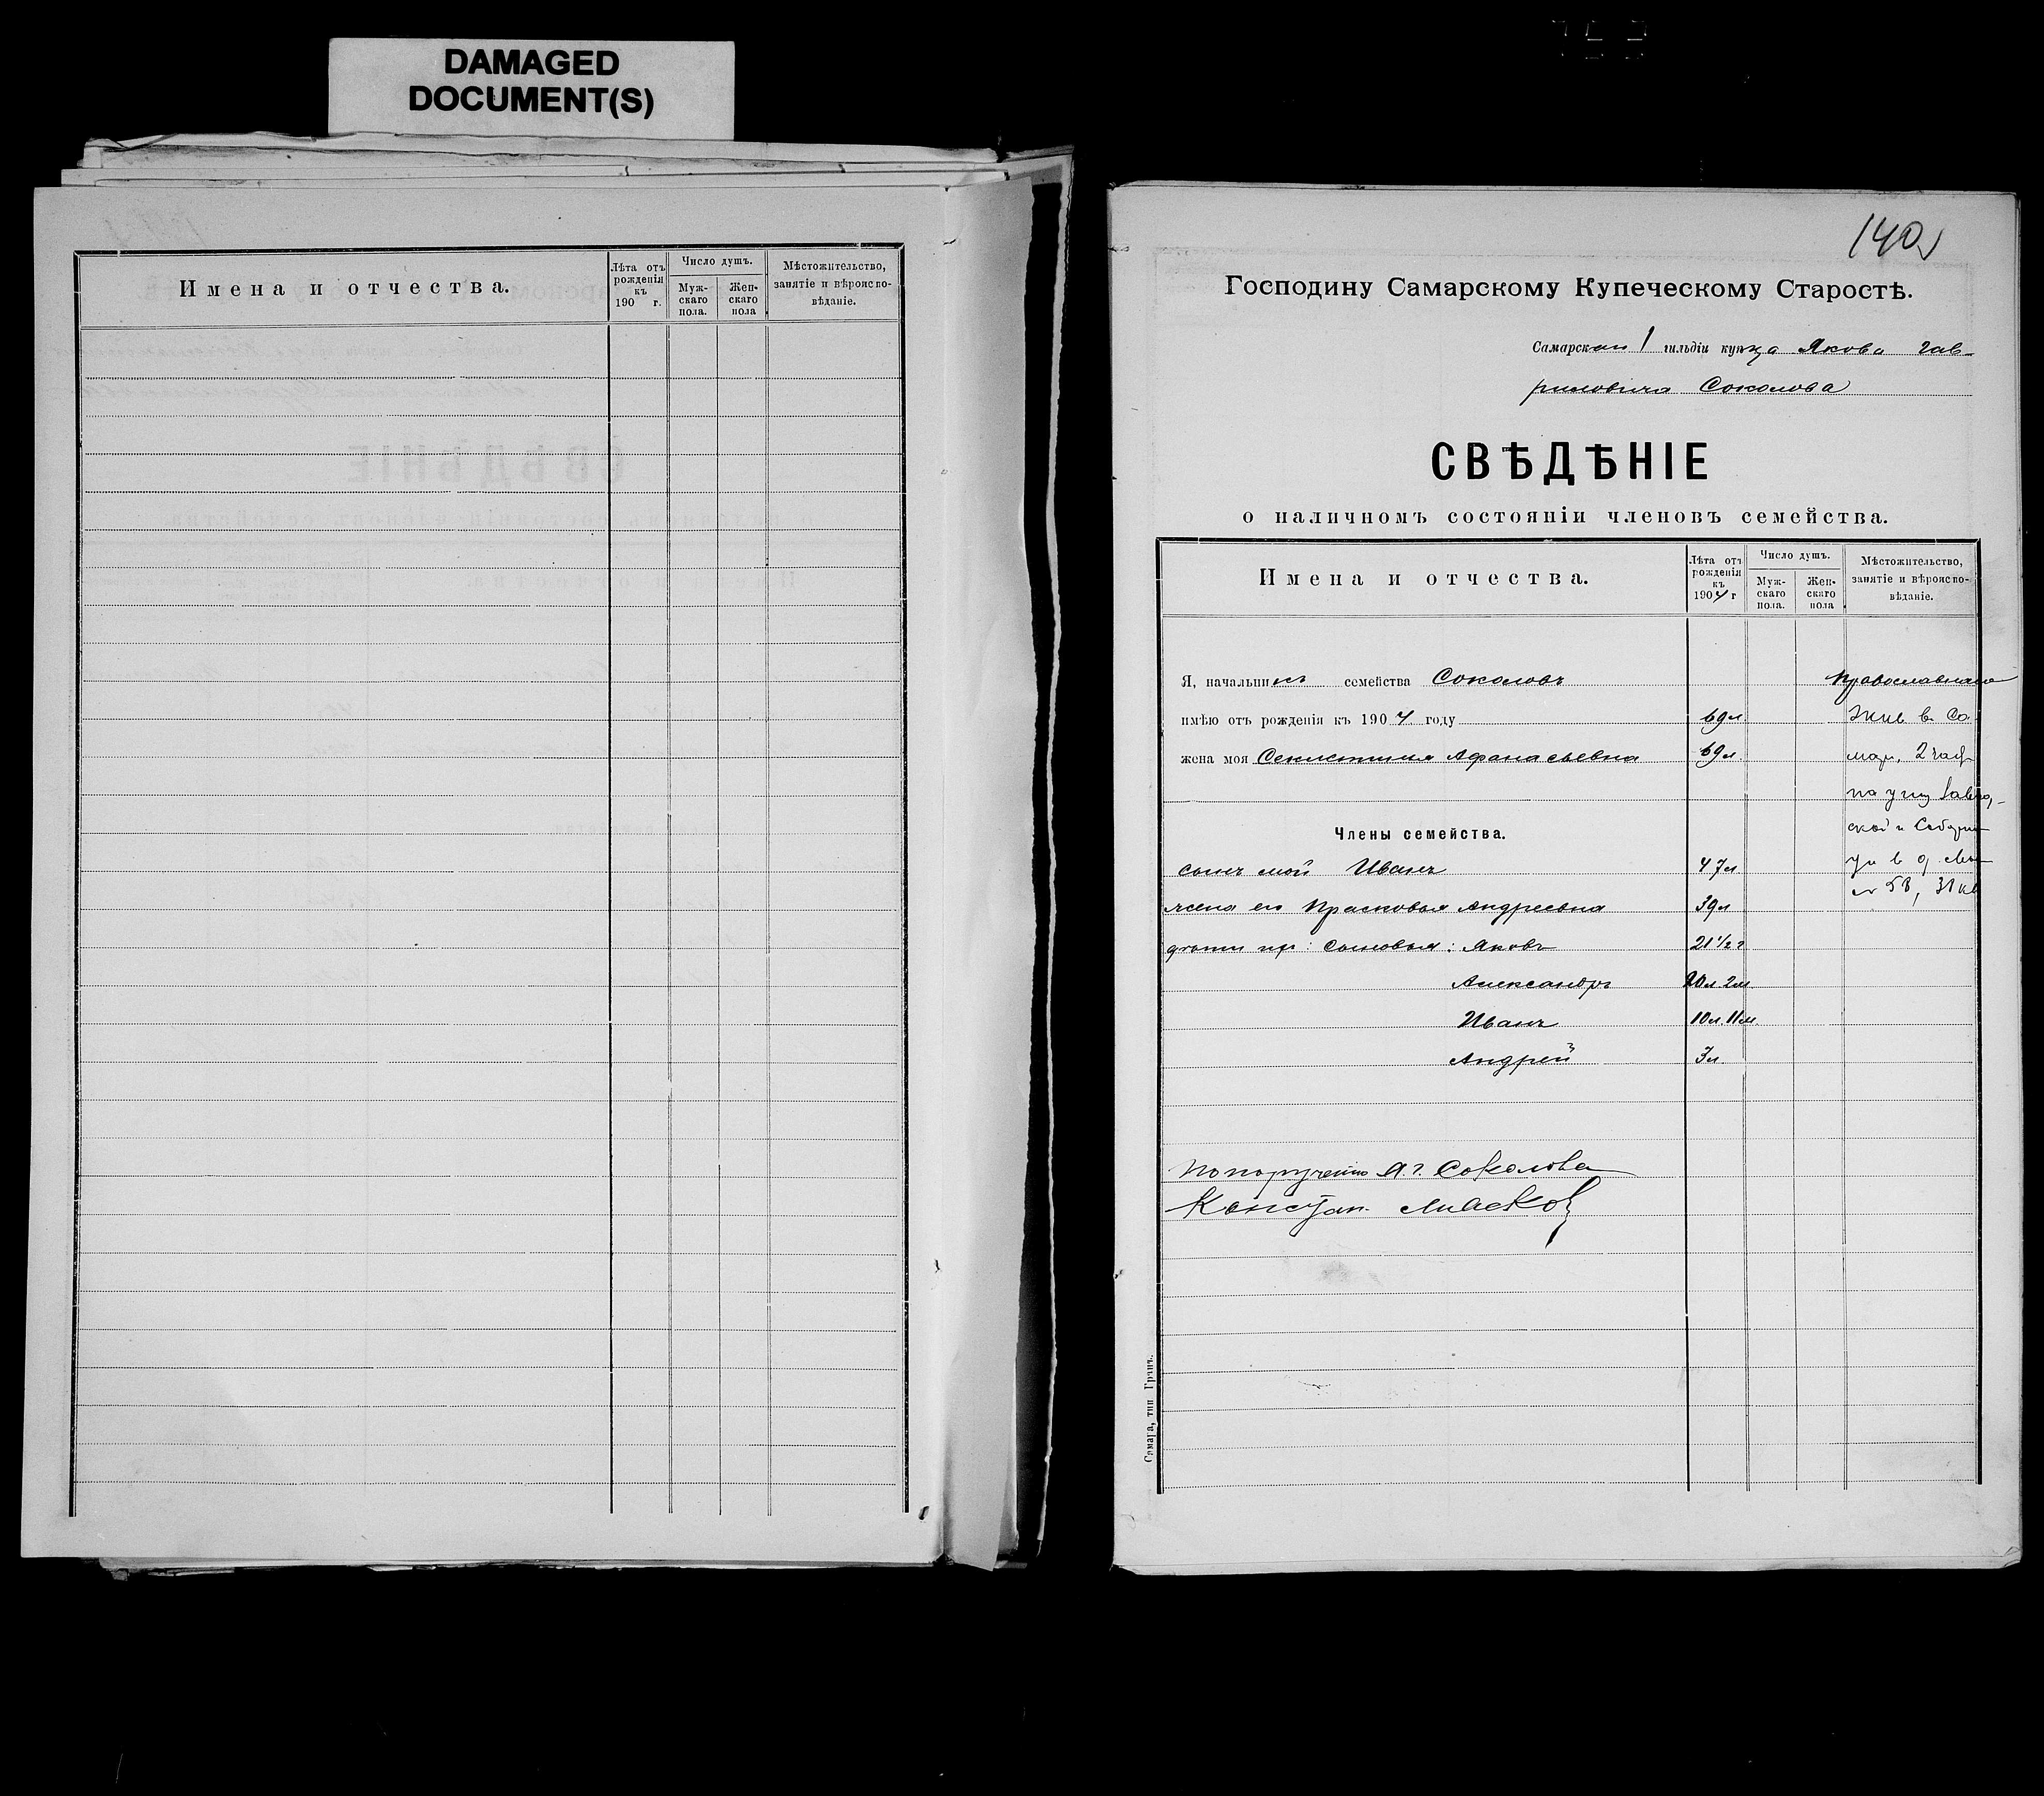 DAMAGED
DOCUMENT(S)
Имена и отчества.
Лѣта отъ рожденія къ 190 г.
Число душъ.
Мужскаго пола.
Женскаго пола
Мѣстожительство, занятіе и вѣроисповѣданіе.
140
Господину Самарскому Купеческому Старостѣ.
Самарскаго 1 гильдіи купца Якова Гав-
риловича Соколова
СВѢДѢНІЕ
о наличномъ состояніи членовъ семейства.
Имена и отчества.
Лѣта отъ рожденія къ 1904 г
Число душъ.
Мужскаго пола.
Женскаго пола
Мѣстожительство, занятіе и вѣроисповѣданіе.
Я, начальникъ семейства Соколовъ Православнаго
имѣю отъ рожденія къ 1904 году 69 л. Жив. въ Са
жена моя Секлетиния Афанасьевна 69 л. мар. 2 час
по
Члены семейства. ской и
сынъ мой Иванъ 47 л
жена его Прасковья Андреевна 39 л
дѣти их: сыновья: Яковъ 21 1/2 г
Александръ 20 л 2 м.
Иванъ 10 л. 11 м.
Андрей 3 л.
По порученію Я. Г. Соколова
Констан.
Самара, тип Гранъ.